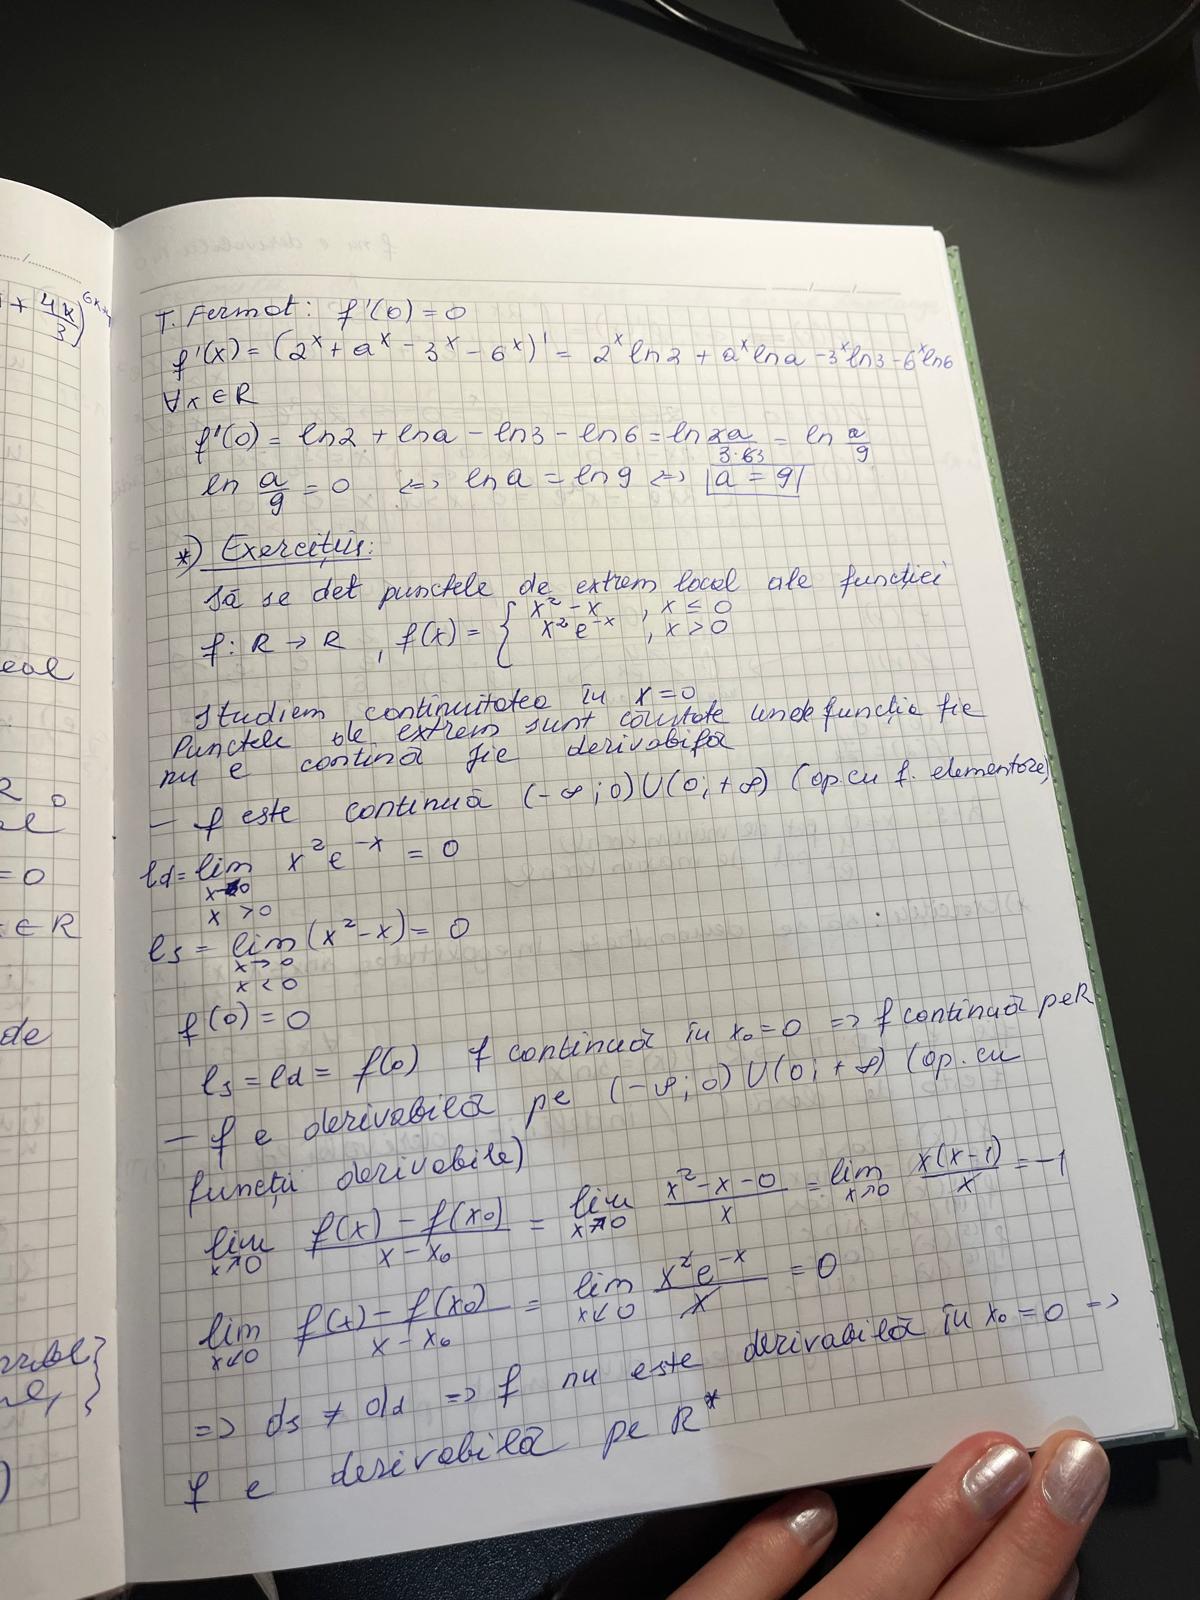 + 4x/3)^6x+
T. Fermat: f'(0) = 0
f'(x) = (2^x + a^x - 3^x - 6^x)' = 2^x ln2 + a^x lna - 3^x ln3 - 6^x ln6
∀x ∈ R
f'(0) = ln2 + lna - ln3 - ln6 = ln 2a/3·63 = ln a/9
ln a/9 = 0 <=> ln a = ln 9 <=> a = 9
*) Exercițiu:
Să se det punctele de extrem local ale funcției
f: R → R, f(x) = { x² - x, x ≤ 0
x² e^-x, x > 0
Studiem continuitatea în x = 0
Punctele de extrem sunt căutate unde funcția fie
nu e contină fie derivabilă
- f este continuă (-∞; 0) U (0; +∞) (op. cu f. elementare)
ld = lim x² e^-x = 0
x→0
x > 0
ls = lim (x² - x) = 0
x → 0
x < 0
f(0) = 0
ls = ld = f(0) f continuă în x₀ = 0 => f continuă pe R
- f e derivabilă pe (-∞; 0) U (0; +∞) (op. cu
funcții derivabile)
lim x↗0 f(x) - f(x₀)/x - x₀ = lim x↗0 x² - x - 0/x = lim x↗0 x(x - 1)/x = -1
lim x↙0 f(x) - f(x₀)/x - x₀ = lim x↙0 x² e^-x/x = 0
=> ds ≠ dd => f nu este derivabilă în x₀ = 0 =>
f e derivabilă pe R*
eal
R
= 0
∈ R
de